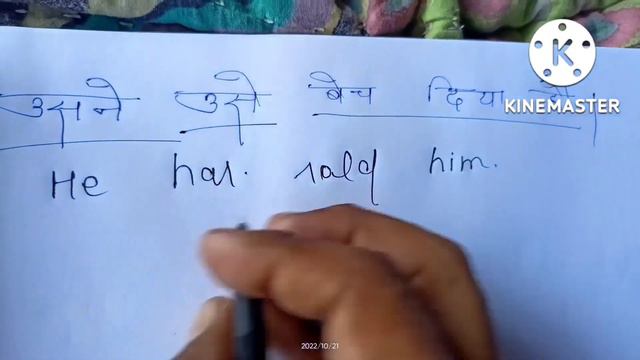 उसने उसे बेच दिया है।
KINEMASTER
He has sold him.
2022/10/21